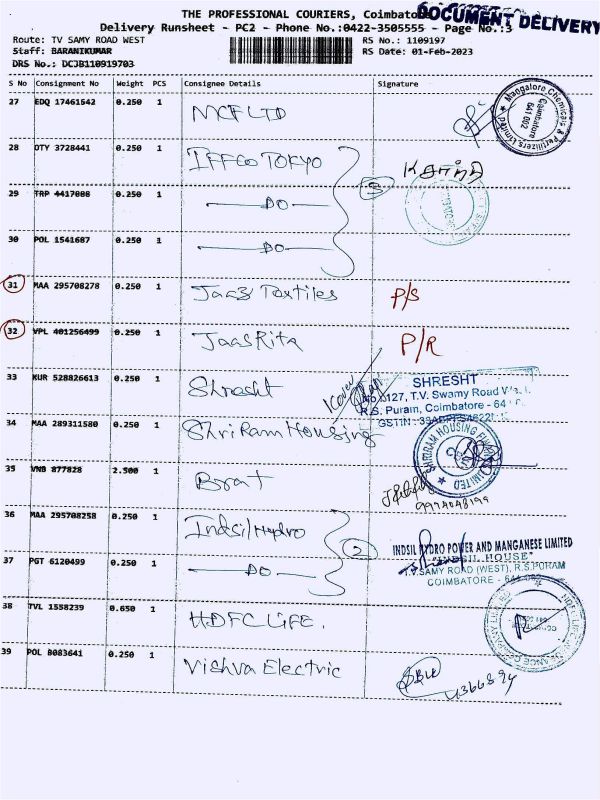 THE PROFESSIONAL COURIERS, Coimbatore
DOCUMENT DELIVERY
Delivery Runsheet - PC2 - Phone No.:0422-3505555 - Page No.:3
Route: TV SAMY ROAD WEST
RS No.: 1109197
Staff: BARANIKUMAR
RS Date: 01-Feb-2023
DRS No.: DCJB110919703
S No Consignment No Weight PCS Consignee Details Signature
27 EDQ 17461542 0.250 1 MCF LTD
Mangalore Chemicals & Fertilizers Limited
Coimbatore 641 002
28 OTY 3728441 0.250 1 IFFCO TOKYO
5
29 TRP 4417088 0.250 1 DO
30 POL 1541687 0.250 1 DO
31 MAA 295708278 0.250 1 Jaaz Textiles P/S
32 VPL 401256499 0.250 1 Jaas Rita P/R
33 KUR 528826613 0.250 1 Shresht
SHRESHT
No 127, T.V. Swamy Road
R.S. Puram, Coimbatore - 64
GSTIN
34 MAA 289311580 0.250 1 Shri Ram Housing
SHRIRAM HOUSING FINANCE LIMITED
35 VNB 877828 2.500 1
36 MAA 295708258 0.250 1 Indsil Hydro
2
INDSIL HYDRO POWER AND MANGANESE LIMITED
"INDSIL HOUSE"
T.V.SAMY ROAD (WEST), R.S.PURAM
COIMBATORE - 641 002
37 PGT 6120499 0.250 1 DO
38 TVL 1558239 0.650 1 HDFC LIFE.
39 POL B083641 0.250 1 Vishva Electric